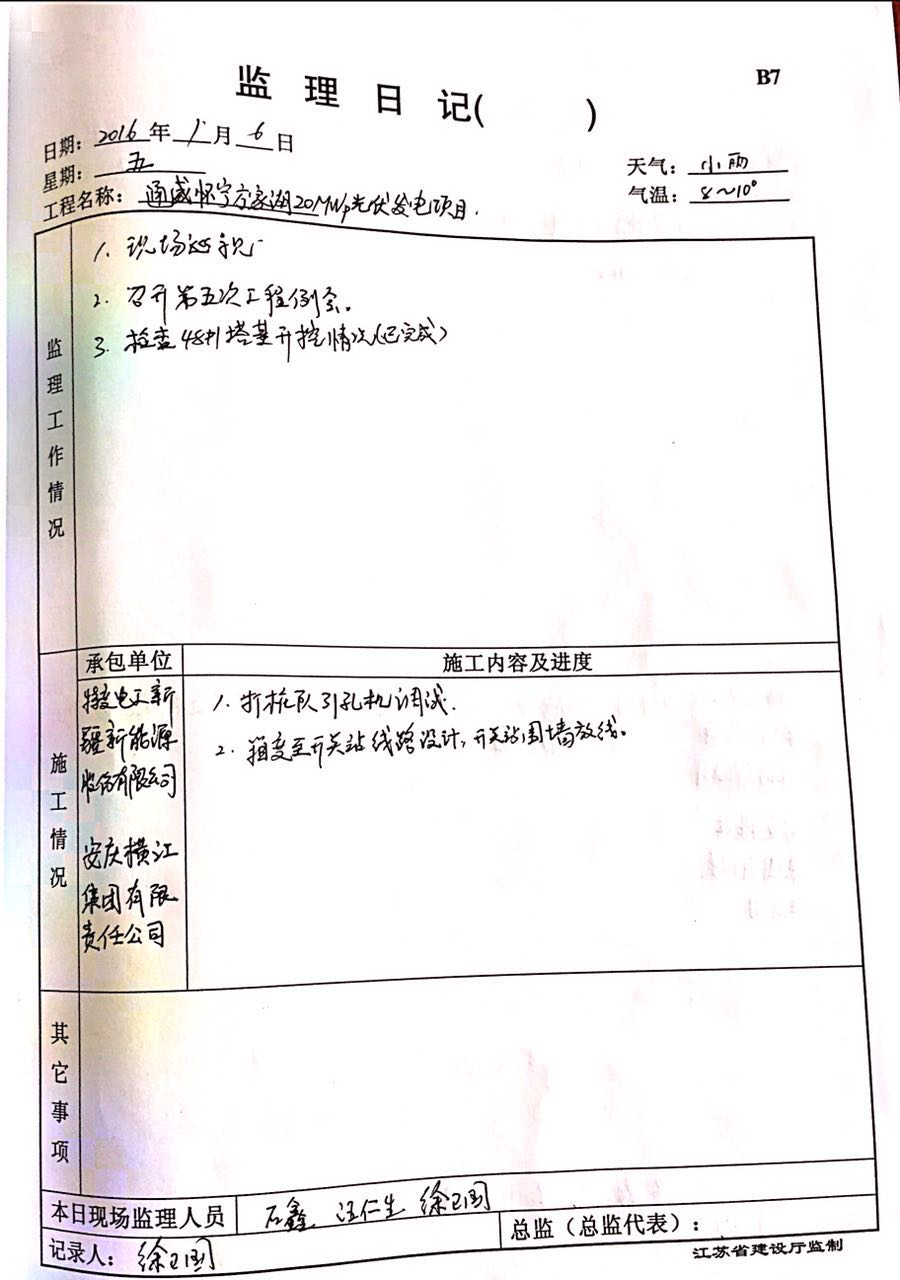 B7
监理日记( )
日期：2016年1月6日
星期：五
天气：小雨
工程名称：通威怀宁方家湖20MWp光伏发电项目.
气温：8～10°
监理工作情况
1. 现场巡视
2. 召开第五次工程例会。
3. 检查48#塔基开挖情况(已完成)
施工情况
承包单位
施工内容及进度
特变电工新
疆新能源
股份有限公司
安庆横江
集团有限
责任公司
1. 打桩队引孔机调试.
2. 箱变至开关站线路设计，开关站围墙放线。
其它事项
本日现场监理人员
石鑫 汪仁生 徐卫国
总监（总监代表）：
记录人：徐卫国
江苏省建设厅监制